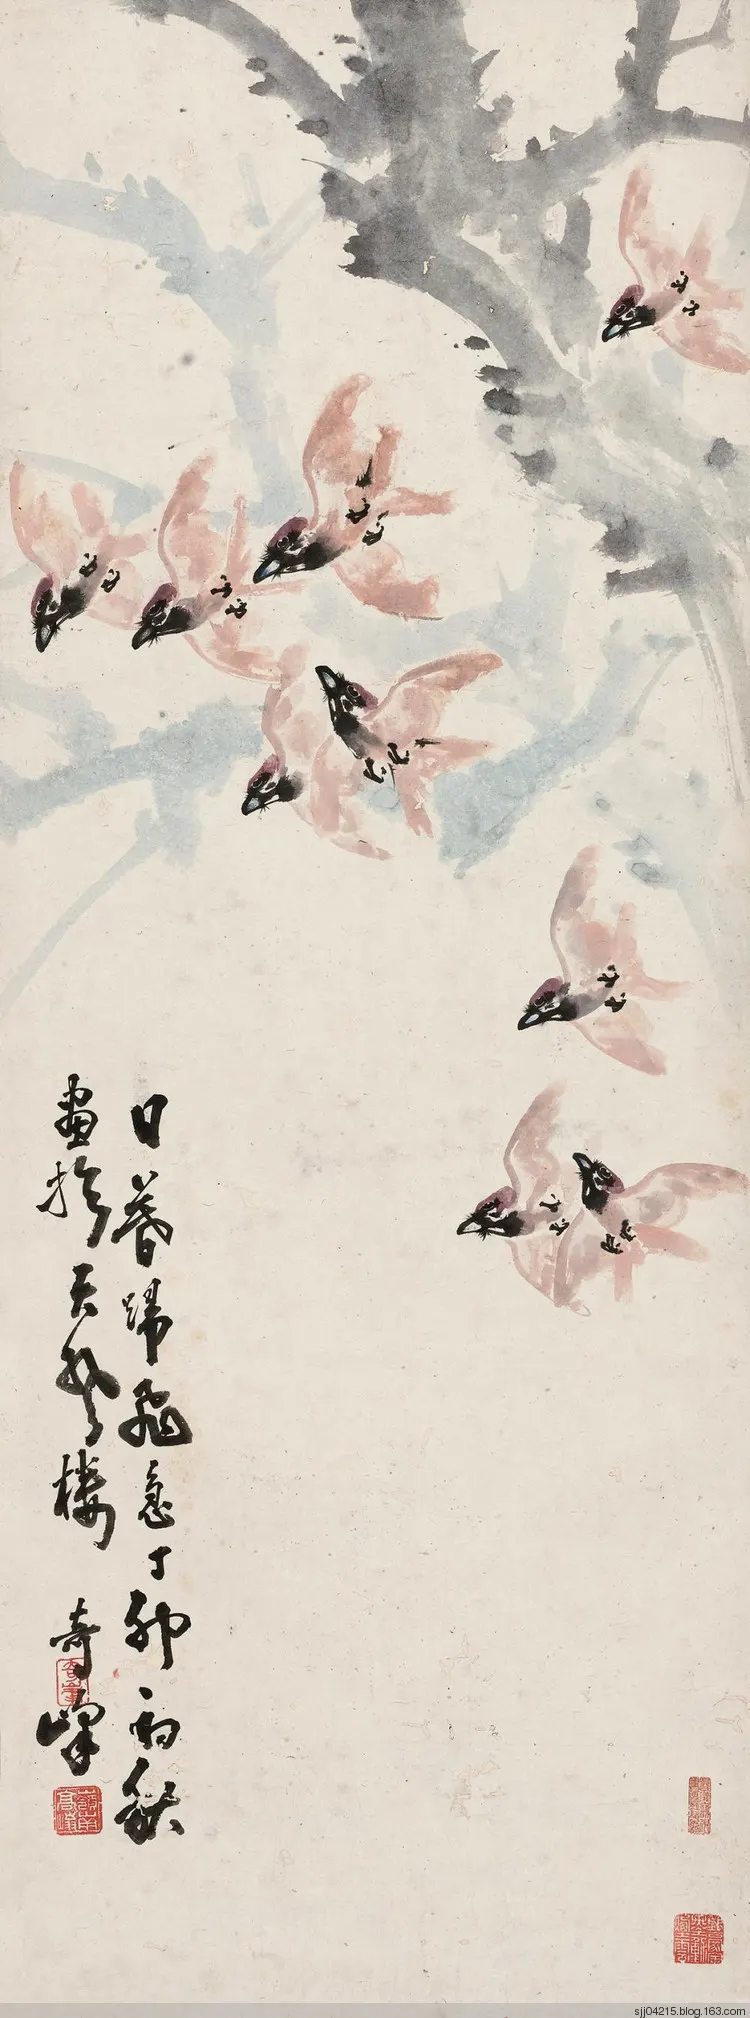 日暮歸飛急丁卯初秋
畫於天風樓
奇峰
sjj04215.blog.163.com